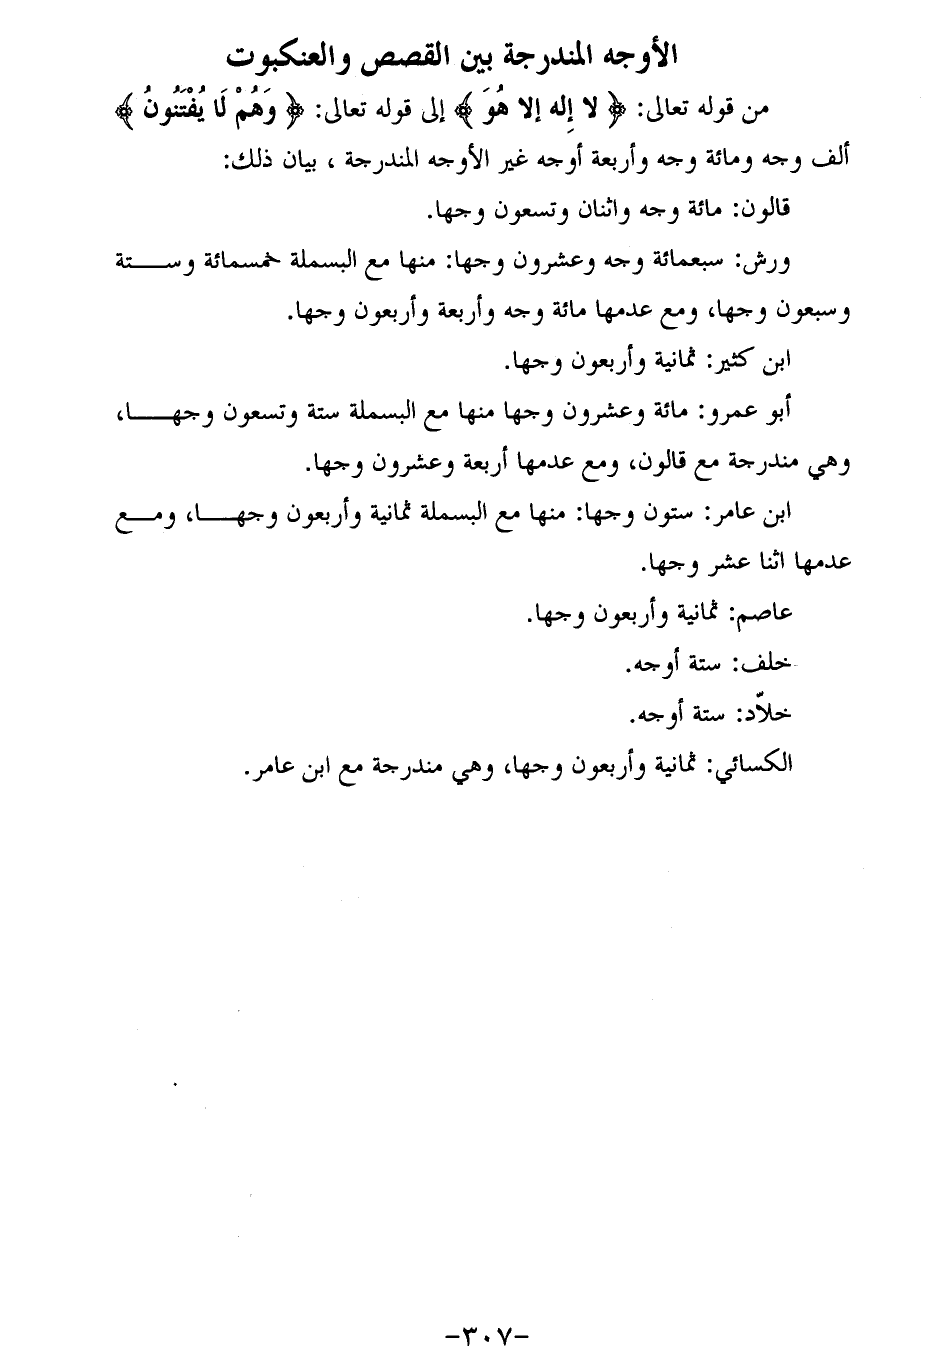 الأوجه المندرجة بين القصص والعنكبوت
من قوله تعالى: ﴿ لا إله إلا هُوَ ﴾ إلى قوله تعالى: ﴿ وَهُمْ لَا يُفْتَنُونُ ﴾
ألف وجه ومائة وجه وأربعة أوجه غير الأوجه المندرجة ، بيان ذلك:
قالون: مائة وجه واثنان وتسعون وجها.
ورش: سبعمائة وجه وعشرون وجها: منها مع البسملة خمسمائة وستة
وسبعون وجها، ومع عدمها مائة وجه وأربعة وأربعون وجها.
ابن كثير: ثمانية وأربعون وجها.
أبو عمرو: مائة وعشرون وجها منها مع البسملة ستة وتسعون وجها،
وهي مندرجة مع قالون، ومع عدمها أربعة وعشرون وجها.
ابن عامر: ستون وجها: منها مع البسملة ثمانية وأربعون وجها، ومع
عدمها اثنا عشر وجها.
عاصم: ثمانية وأربعون وجها.
خلف: ستة أوجه.
خلاّد: ستة أوجه.
الكسائي: ثمانية وأربعون وجها، وهي مندرجة مع ابن عامر.
-٣٠٧-